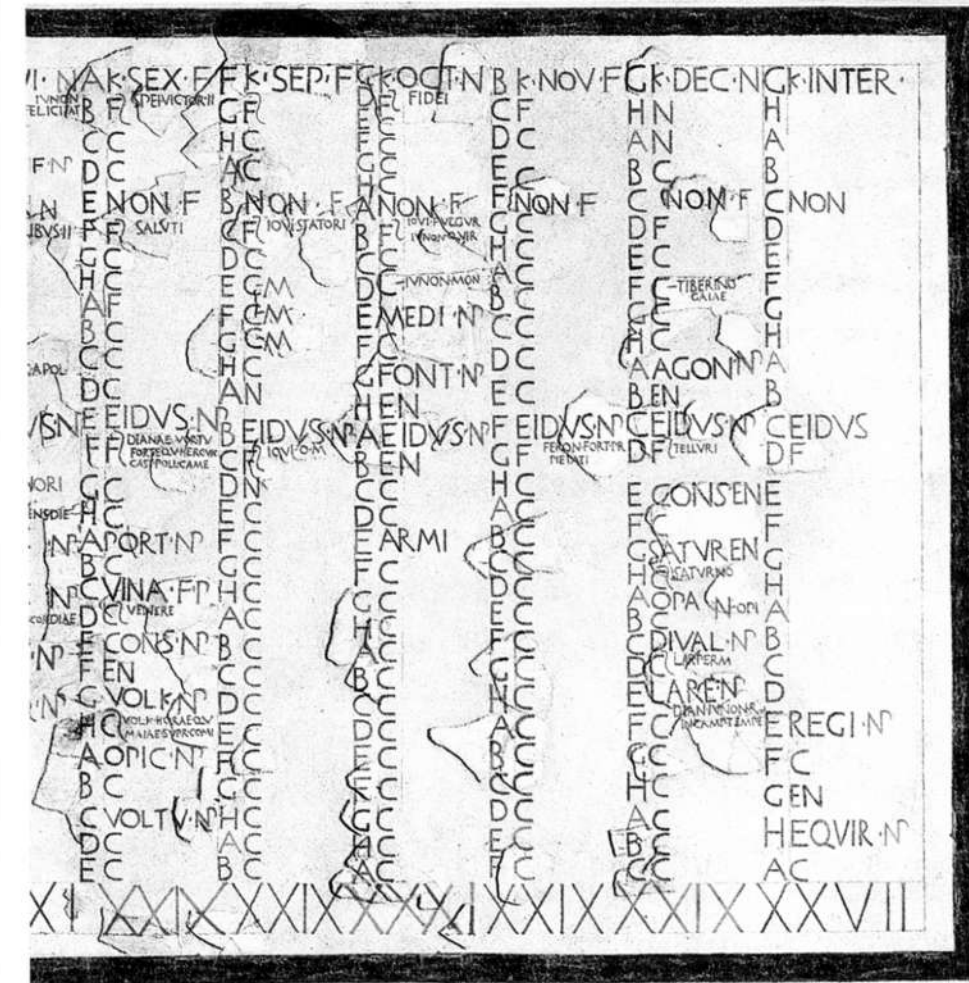 I·N
IVNON
FELICITAT
F·N
N
IBVS·II
APOL
VS·N
NORI
ENSDIE
N
N
CORDIAE
N
N
XI
A K·SEX·F
SPEI VICTOR·II
B F
C C
D C
E NON·F
F F SALVTI
G C
H C
A F
B C
C C
D C
E EIDVS·N
F F DIANAE·VORTV
FORT EQV HERCVIC
CAST POLL CAME
G C
H C
A PORT·N
B C
C VINA·FP
D C VENERE
E CONS·N
F EN
G VOLK·N
H C VOLK·HORAE QV
MAIAE SVPR COMI
A OPIC·N
B C
C VOLTV·N
D C
E C
XXIX
F K·SEP·F
G F
H C
A C
B NON·F
C F IOVI STATORI
D C
E C M
F C M
G C M
H C
A N
B EIDVS·N
C F IOVI·O·M
D N
E C
F C
G C
H C
A C
B C
C C
D C
E C
F C
G C
H C
A C
B C
XXIX
C K·OCT·N
FIDEI
D F
E C
F C
G C
H C
A NON·F
B F IOVI·FVLGVR
IVNON·QVIR
C C
D C IVNON MON
E MEDI·N
F C
G FONT·N
H EN
A EIDVS·N
B EN
C C
D C
E ARMI
F C
G C
H C
A C
B C
C C
D C
E C
F C
G C
H C
A C
XXXI
B K·NOV·F
C F
D C
E C
F NON·F
G C
H C
A C
B C
C C
D C
E C
F EIDVS·N
G F FERON·FORT·PR
PIETATI
H C
A C
B C
C C
D C
E C
F C
G C
H C
A C
B C
C C
D C
E C
F C
XXIX
G K·DEC·N
H N
A N
B C
C NON·F
D F
E C
F C TIBERINO
GAIAE
G C
H C
A AGON·N
B EN
C EIDVS·N
D F TELLVRI
E CONS EN
F C
G SATVR EN
H C SATVRNO
A OPA N·OPI
B C
C DIVAL·N
D C LAR PERM
E LARE·N
F C DIAN·IVNON·R
IN CAMP·TEMPE
G C
H C
A C
B C
C C
XXIX
G K·INTER·
H
A
B
C NON
D
E
F
G
H
A
B
C EIDVS
D F
E
F
G
H
A
B
C
D
E REGI·N
F C
G EN
H EQVIR·N
A C
XXVII